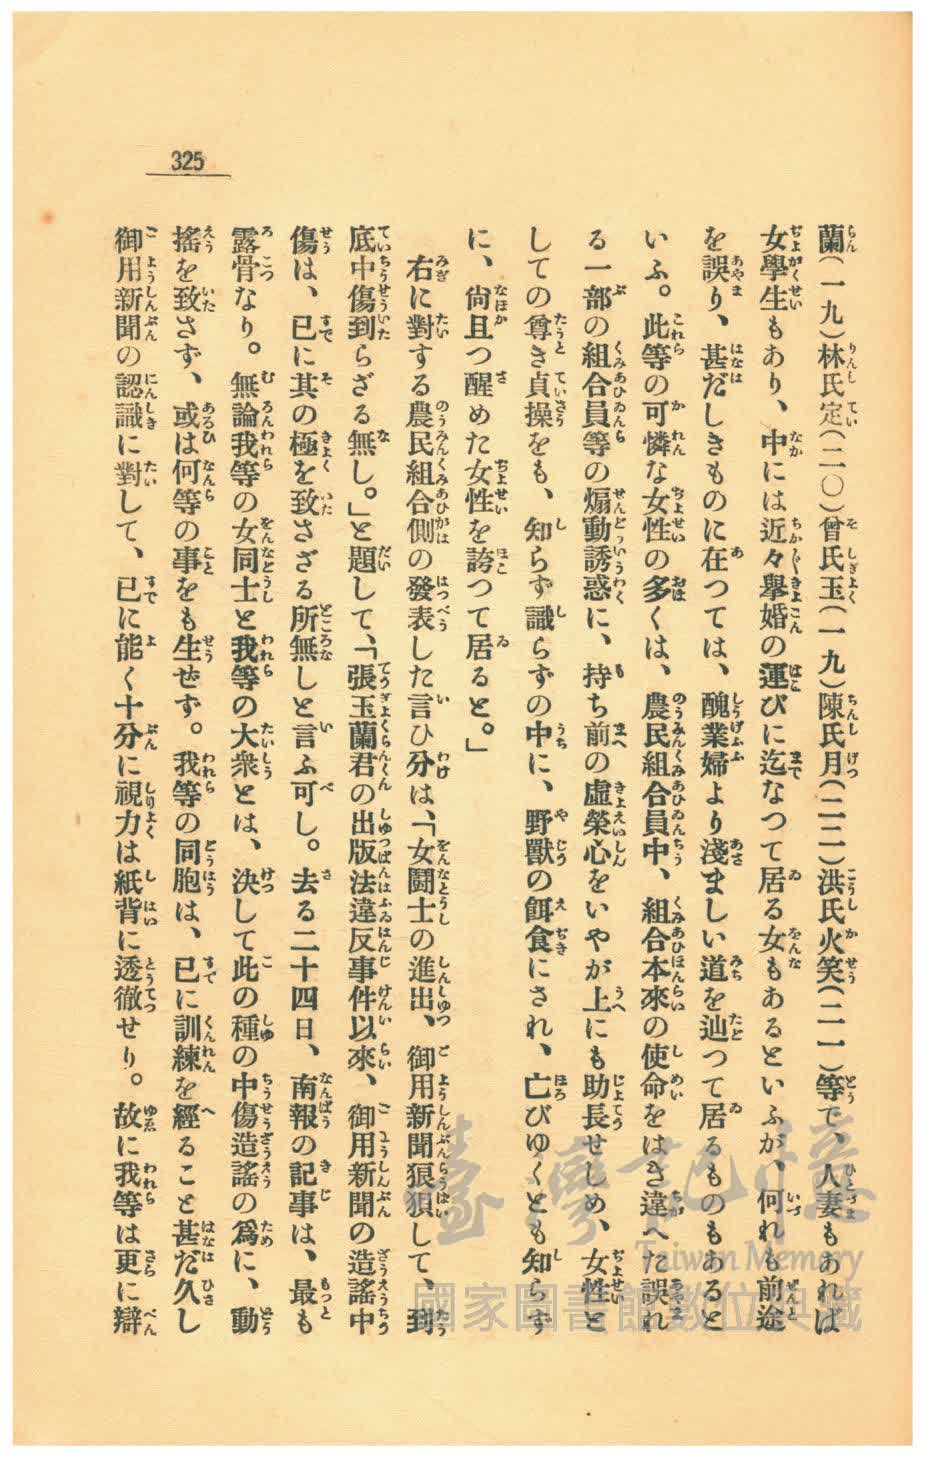 325
蘭(一九)林氏定(二〇)曾氏玉(一九)陳氏月(二二)洪氏火笑(二一)等で、人妻もあれば
女學生もあり、中には近々擧婚の運びに迄なつて居る女もあるといふが、何れも前途
を誤り、甚だしきものに在つては、醜業婦より淺ましい道を辿つて居るものもあると
いふ。此等の可憐な女性の多くは、農民組合員中、組合本來の使命をはき違へた誤れ
る一部の組合員等の煽動誘惑に、持ち前の虛榮心をいやが上にも助長せしめ、女性と
しての尊き貞操をも、知らず識らずの中に、野獸の餌食にされ、亡びゆくとも知らず
に、尙且つ醒めた女性を誇つて居ると。」
右に對する農民組合側の發表した言ひ分は、「女鬪士の進出、御用新聞狼狽して、到
底中傷到らざる無し。」と題して、「張玉蘭君の出版法違反事件以來、御用新聞の造謠中
傷は、已に其の極を致さざる所無しと言ふ可し。去る二十四日、南報の記事は、最も
露骨なり。無論我等の女同士と我等の大衆とは、決して此の種の中傷造謠の爲に、動
搖を致さず、或は何等の事をも生せず。我等の同胞は、已に訓練を經ること甚だ久し
御用新聞の認識に對して、已に能く十分に視力は紙背に透徹せり。故に我等は更に辯
臺灣記憶
Taiwan Memory
國家圖書館數位典藏